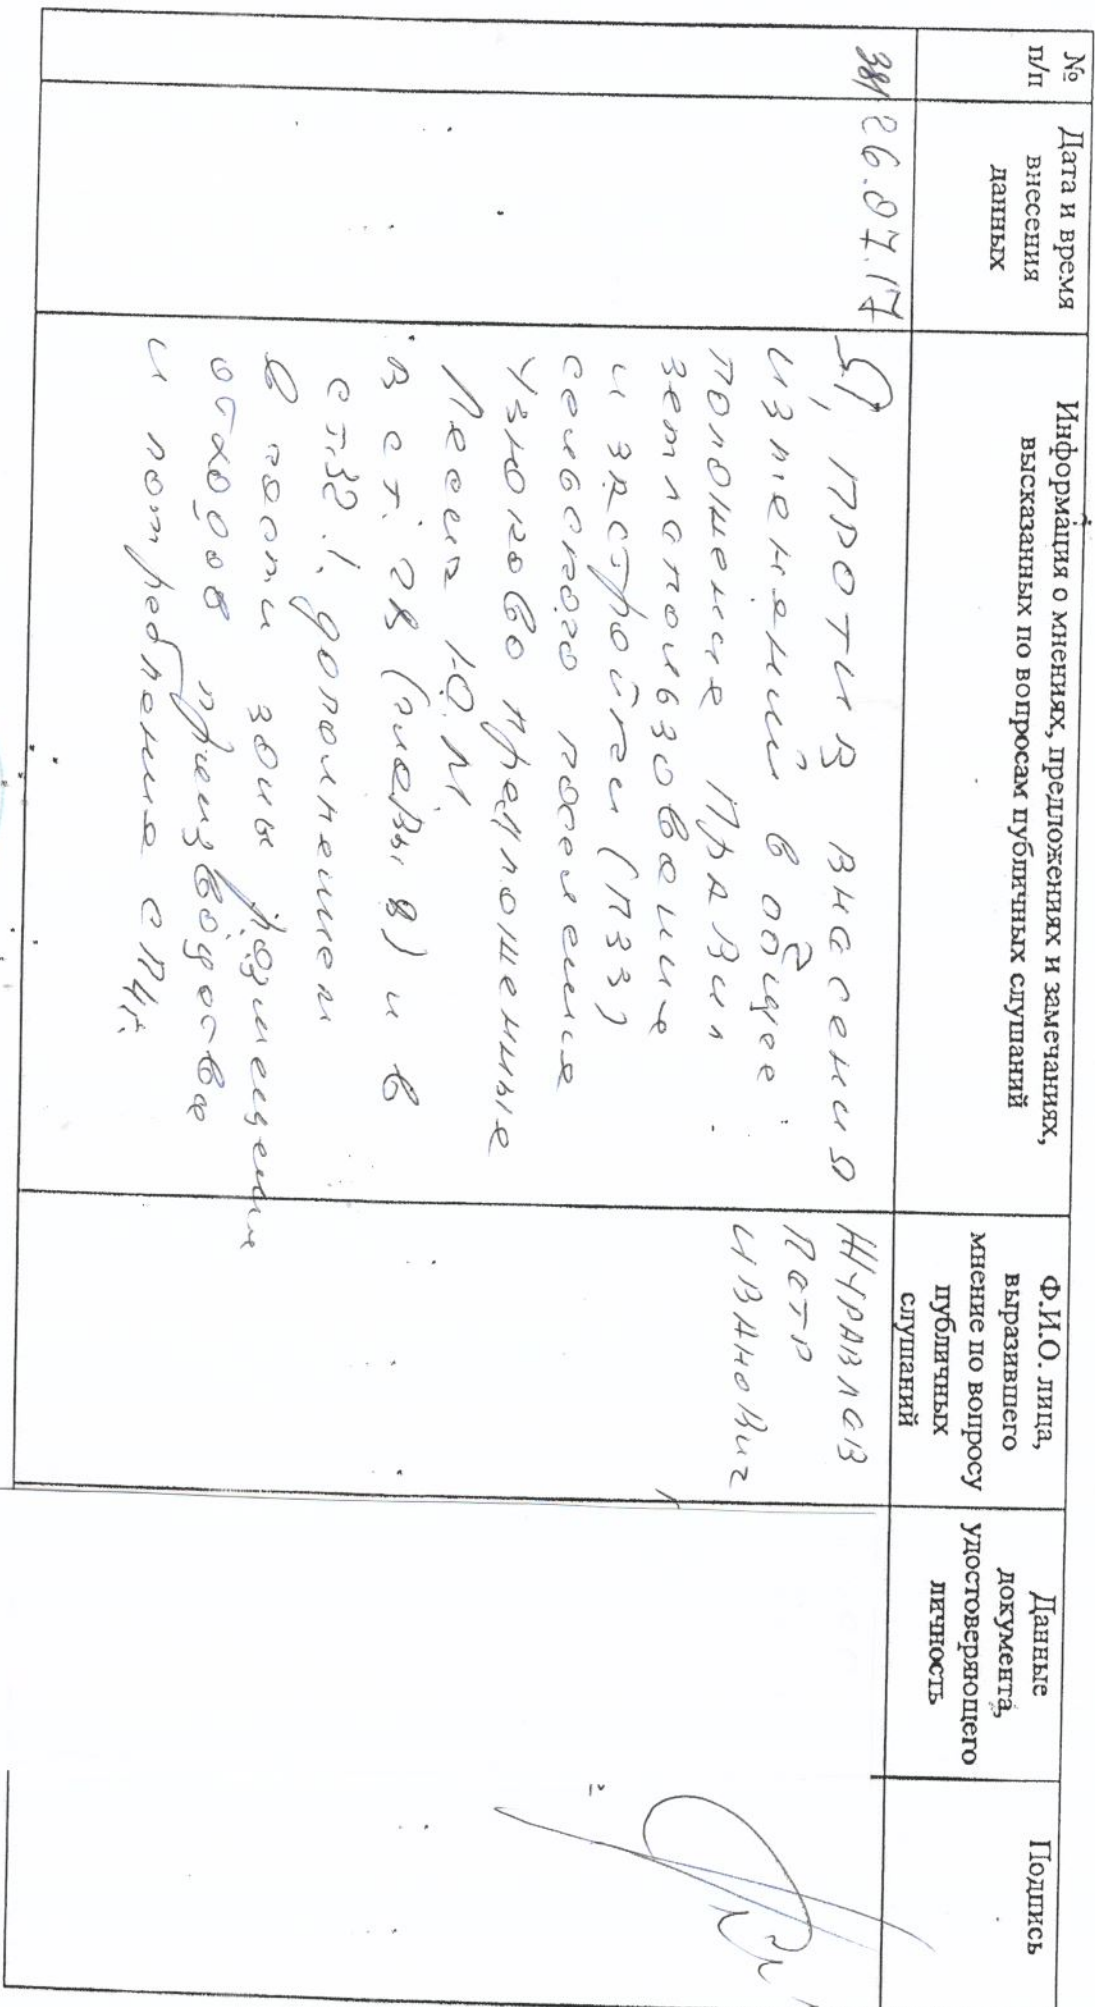 №
п/п
Дата и время
внесения
данных
Информация о мнениях, предложениях и замечаниях,
высказанных по вопросам публичных слушаний
Ф.И.О. лица,
выразившего
мнение по вопросу
публичных
слушаний
Данные
документа,
удостоверяющего
личность
Подпись
38/
26.07.17
Я, против внесения
изменений в общее
положение Правил
землепользование
и застройки (ПЗЗ)
сельского поселения
Узюково предложенные
Ю.М.
в ст. 28 (главы 8) и в
ст 32.1, дополнением
в части зоны размещения
отходов производства
и потребление
ЖУРАВЛев
Петр
ИВАНОВич